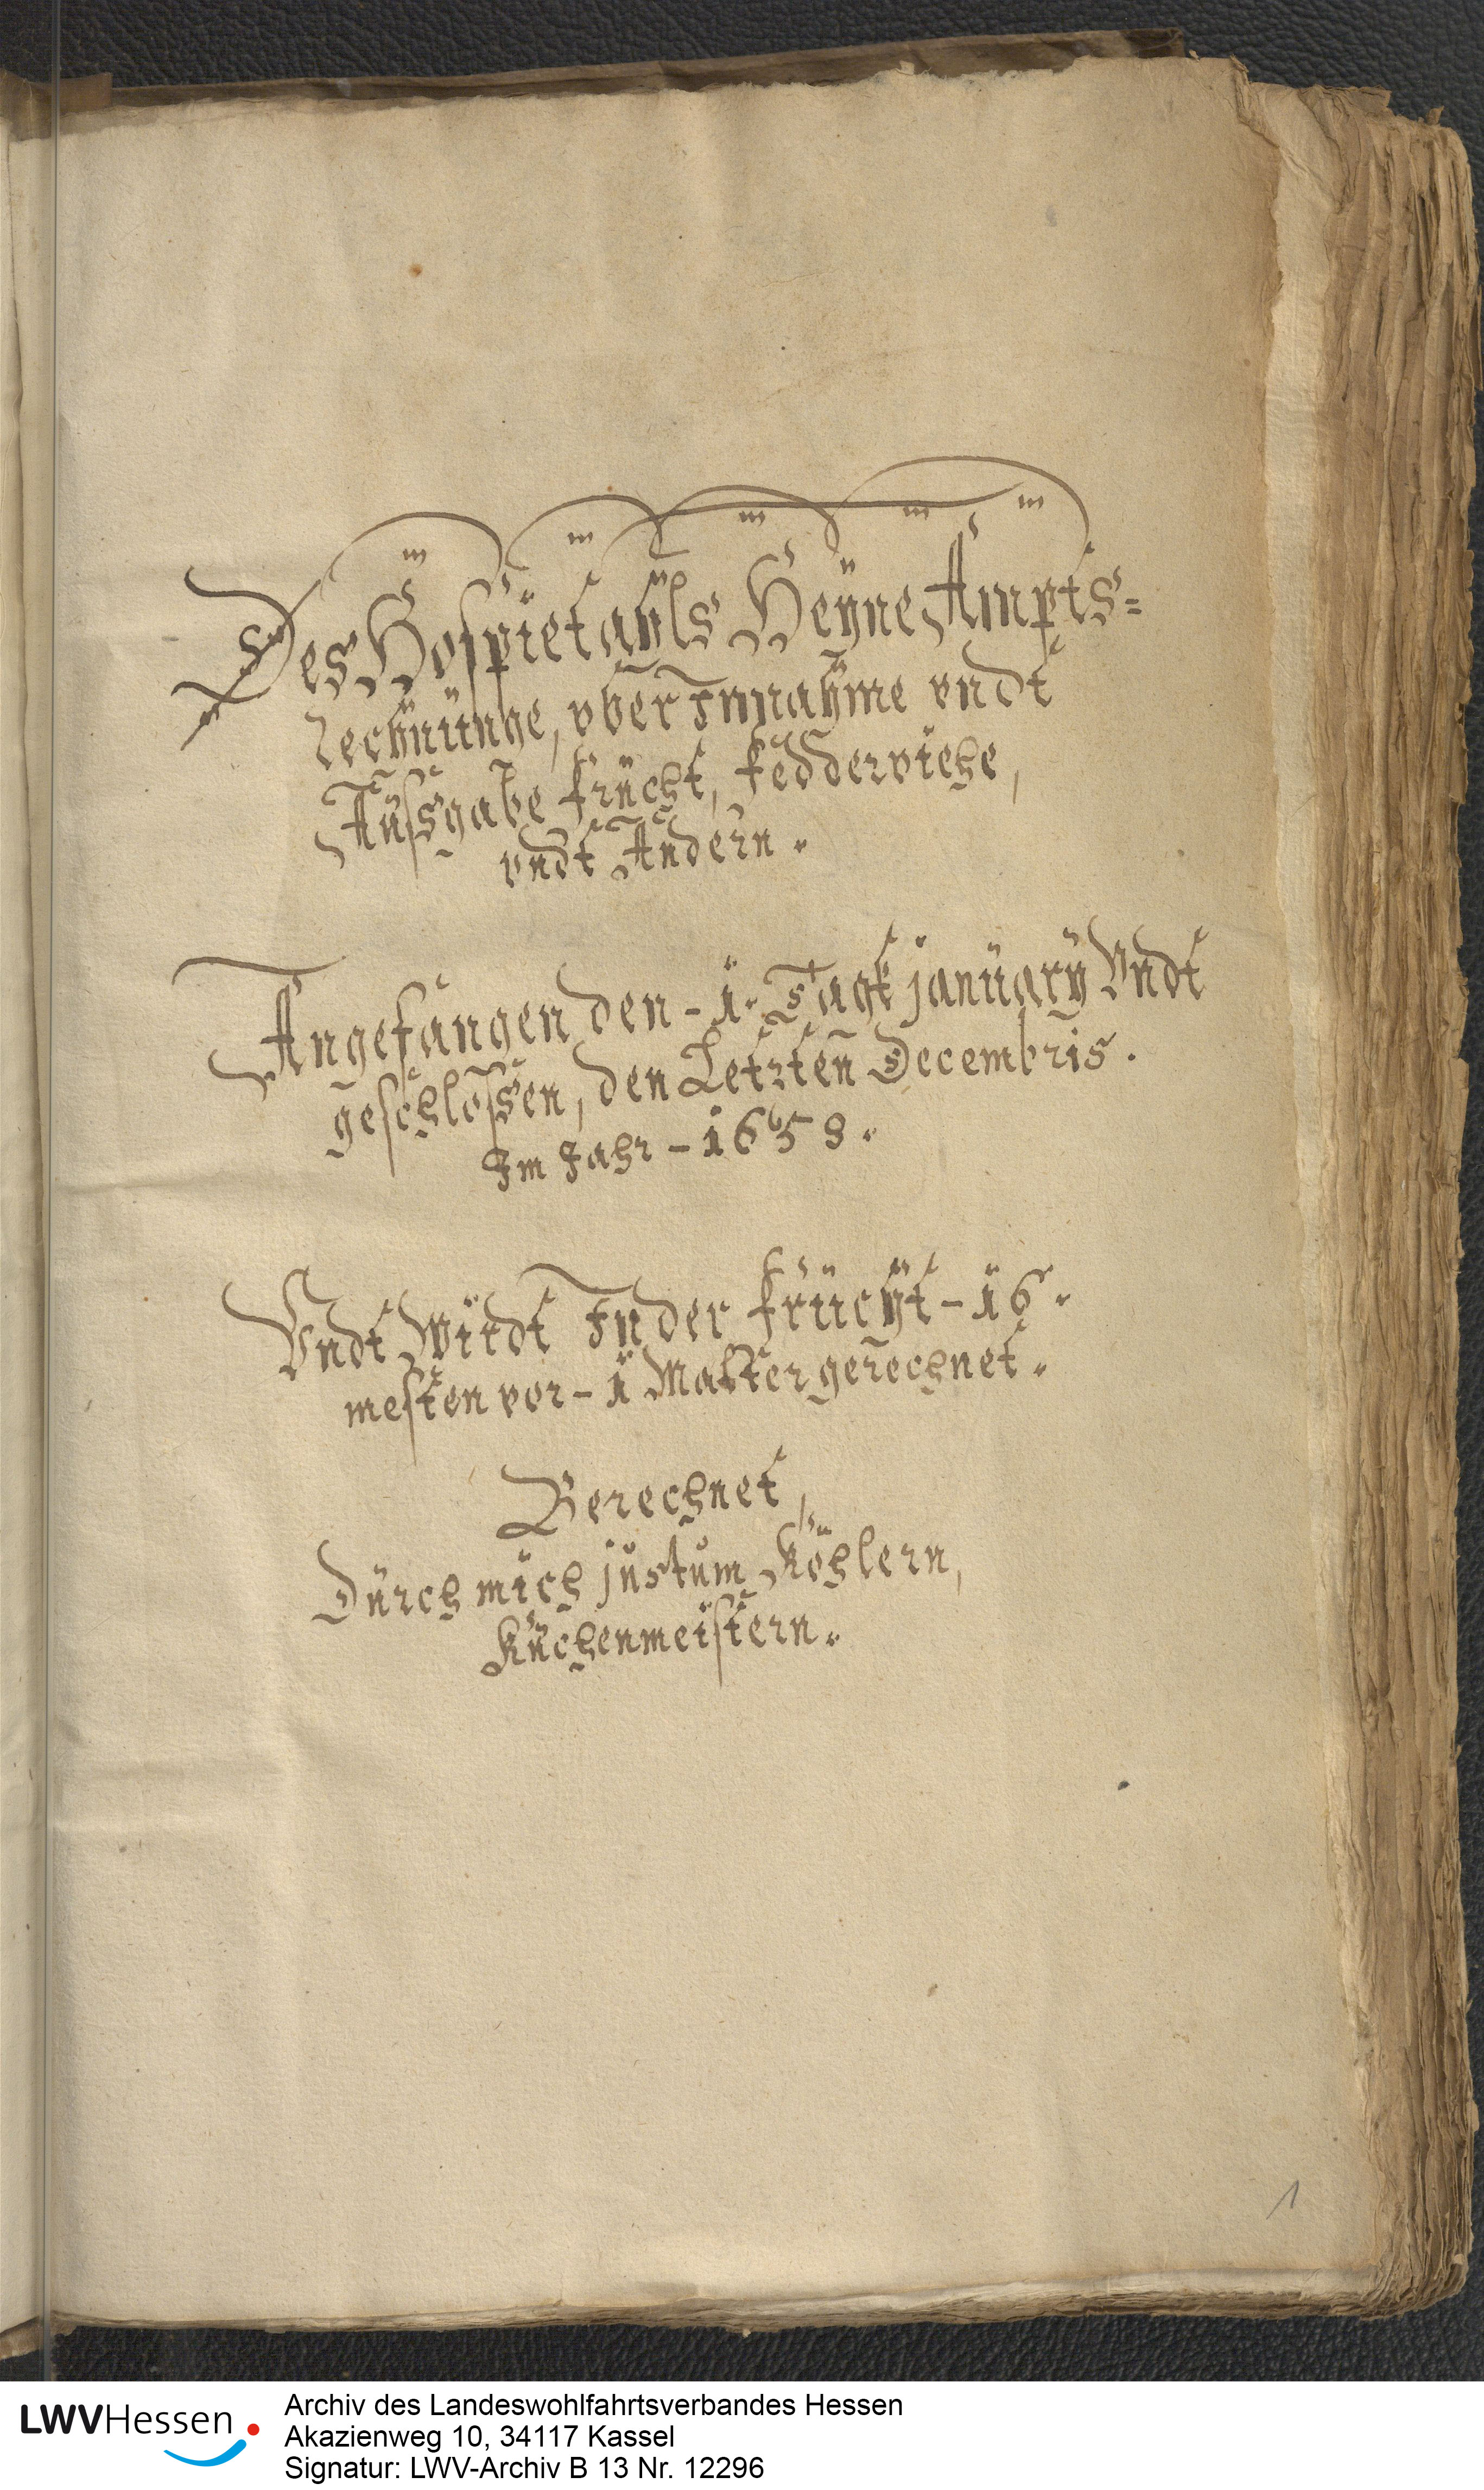 Des Hospietauls Heÿne Ampts=
rechnunge, vber Innahme vndt
Außgabe frücht, fedderviehe,
vndt Andern.
Angefangen den - 1. Tagk january Vndt
geschloßen, den Letzten Decembris.
Im Jahr - 1658.
Vndt Wirdt In der frücht - 16.
mesten vor - 1 Malter gerechnet.
Berechnet,
Durch mich justum Köhlern,
Küchenmeistern.
1
LWVHessen
Archiv des Landeswohlfahrtsverbandes Hessen
Akazienweg 10, 34117 Kassel
Signatur: LWV-Archiv B 13 Nr. 12296